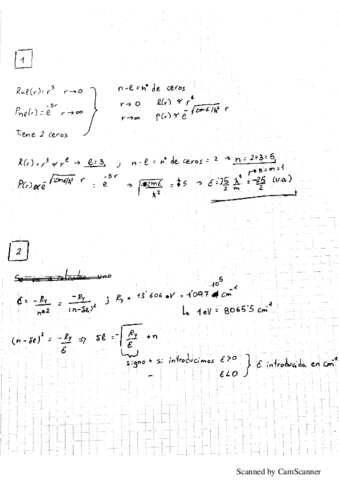 1
Rnl(r) = r³ r→0
Pnl(r) = e^-5r r→∞
Tiene 2 ceros
n-l = nº de ceros
r→0 R(r) ∝ r^l
r→∞ P(r) ∝ e^-√(2mE/ħ²) r
R(r) = r³ ∝ r^l → l=3 ; n-l = nº de ceros = 2 → n = 2+3 = 5
P(r) ∝ e^-√(2mE/ħ²) r = e^-5r → √(2mE/ħ²) = 5 → E = -25/2 ħ²/m = -25/2 (u.a.)
ħ=m=1
2
E = -Ry/n*² = -Ry/(n-δl)² ; Ry = 13'606 eV = 1'097 10⁵ cm⁻¹
↳ 1 eV = 8065'5 cm⁻¹
(n-δl)² = -Ry/E ⇒ δl = -√(Ry/E) + n
signo + si introducimos E>0
- E<0
E introducida en cm⁻¹
Scanned by CamScanner